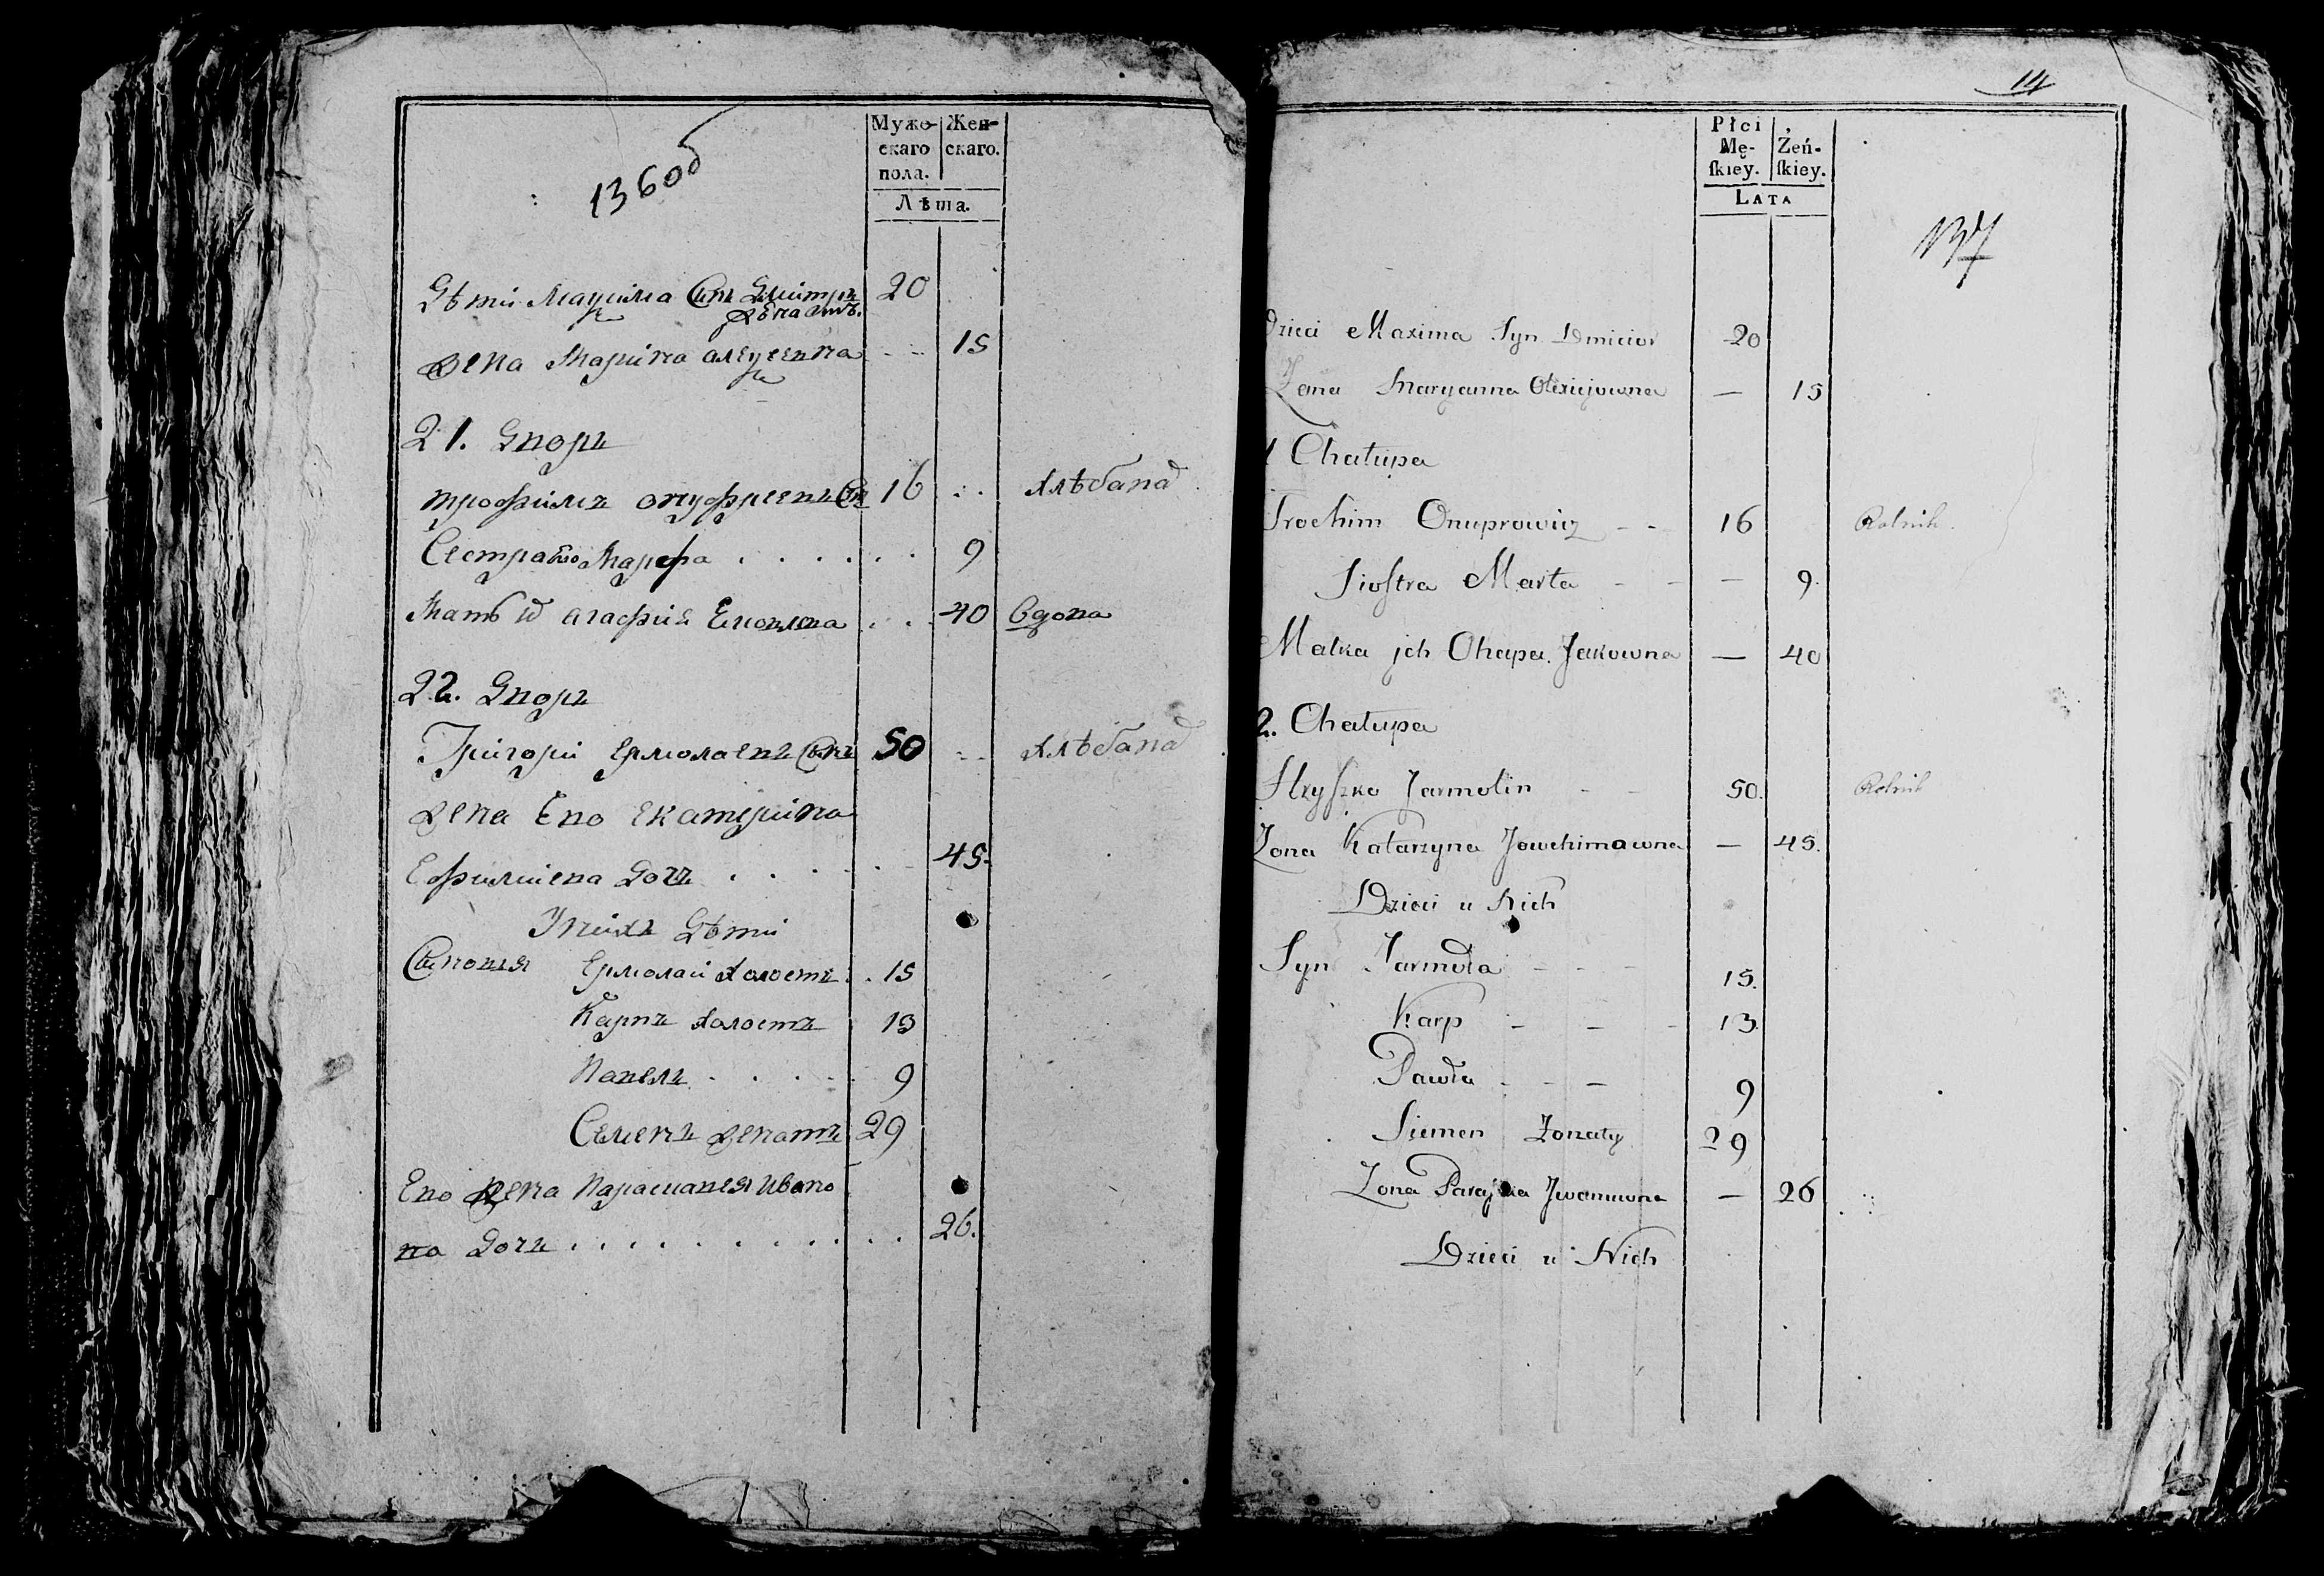 136 об
Муже-
скаго
пола.
Жен-
скаго.
Лѣта.
Дѣти Мацима Сынъ Дмитръ 20
женатъ.
жена Марина алеуеевна 15
21. Дворъ
трофимъ онуфріевъ Сн 16 хлѣбопа
Сестра его Марфа . . . . . . 9
Мать их агафия 40 вдова
22. Дворъ
Григори ермолаевъ Снъ 50 хлѣбопа
жена Ево екатерина
Ефимиева Дочь . . . . 45.
У нихъ Дѣти
Сыновья Ермолай холостъ 15
Карпъ холостъ 13
Павелъ . . . . 9
Семенъ женатъ 29
Ево жена Парасковея Ивано
ва Дочь . . . . . . . . . . . 26.
14
Płci
Mę-
ſkiey.
Żeń-
ſkiey.
LATA
137
Dzieci Maxima Syn Dmitior 20
Zona Maryanna Olexiejowna — 15
1 Chałupa
Trochim Onuprowicz - - 16 Rolnik.
Siostra Marta - - — 9.
Matka jch Ohapa Jakowna — 40
2. Chałupa
Hryſzko Jarmolin - - 50. Rolnik
Zona Katarzyna Jowchimowna — 45.
Dzieci u Nich
Syn Jarmoła - - - 15.
Karp - - - 13.
Pawła - - - 9
Siemen Zonaty 29
Zona Paraſka Jwanowna — 26
Dzieci u Nich